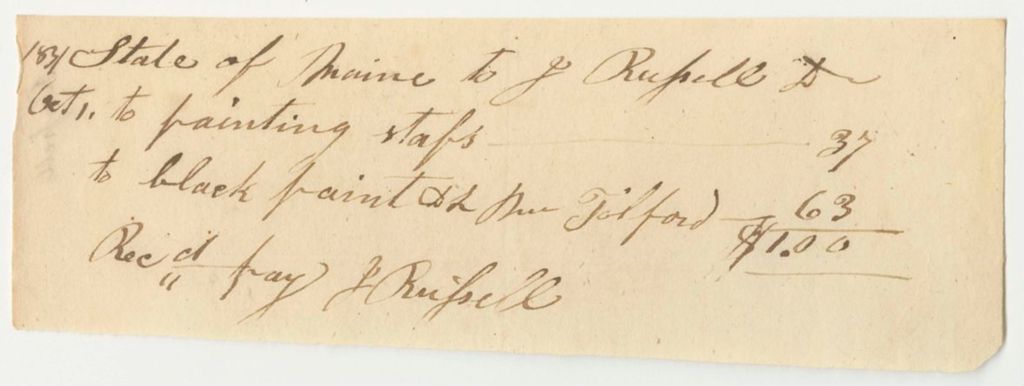 1831 State of Maine to J Russell Dr
Oct 1. to painting staffs 37
to black paint Mr Tilford 63
$1.00
Rec'd pay J Russell